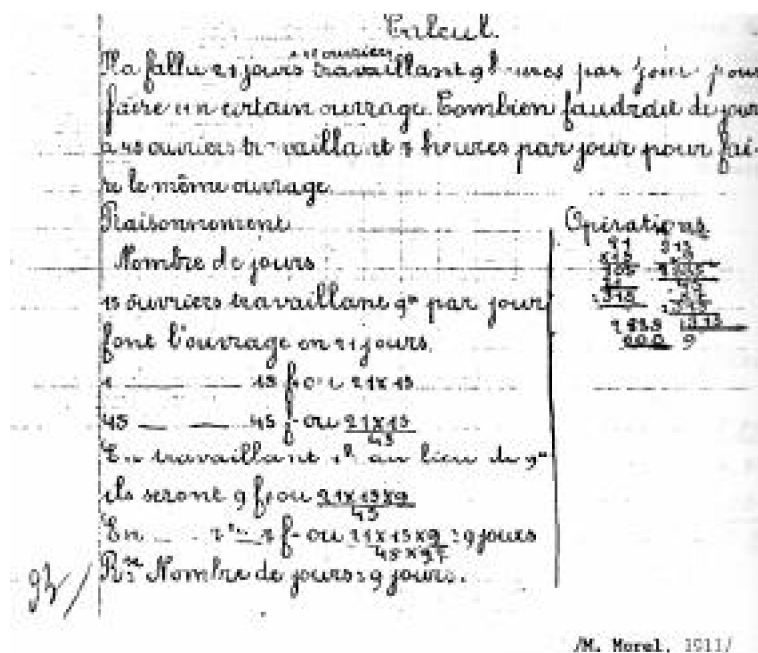 Calcul.
à 15 ouvriers
Il a fallu 21 jours travaillant 9 heures par jour pour
faire un certain ouvrage. Combien faudrait de jour
à 45 ouvriers travaillant 7 heures par jour pour fai-
re le même ouvrage
Raisonnement
Nombre de jours
15 ouvriers travaillant 9h par jour
font l'ouvrage en 21 jours.
1 15 f ou 21x15
45 45 f ou 21x15
45
En travaillant 1h au lieu de 9h
ils seront 9 f ou 21x15x9
45
En 7h 7 f ou 21x15x9 = 9 jours
45x7
Rse Nombre de jours = 9 jours.
Opérations
21 315
315
315
2835 315
000 9
/M. Morel, 1911/